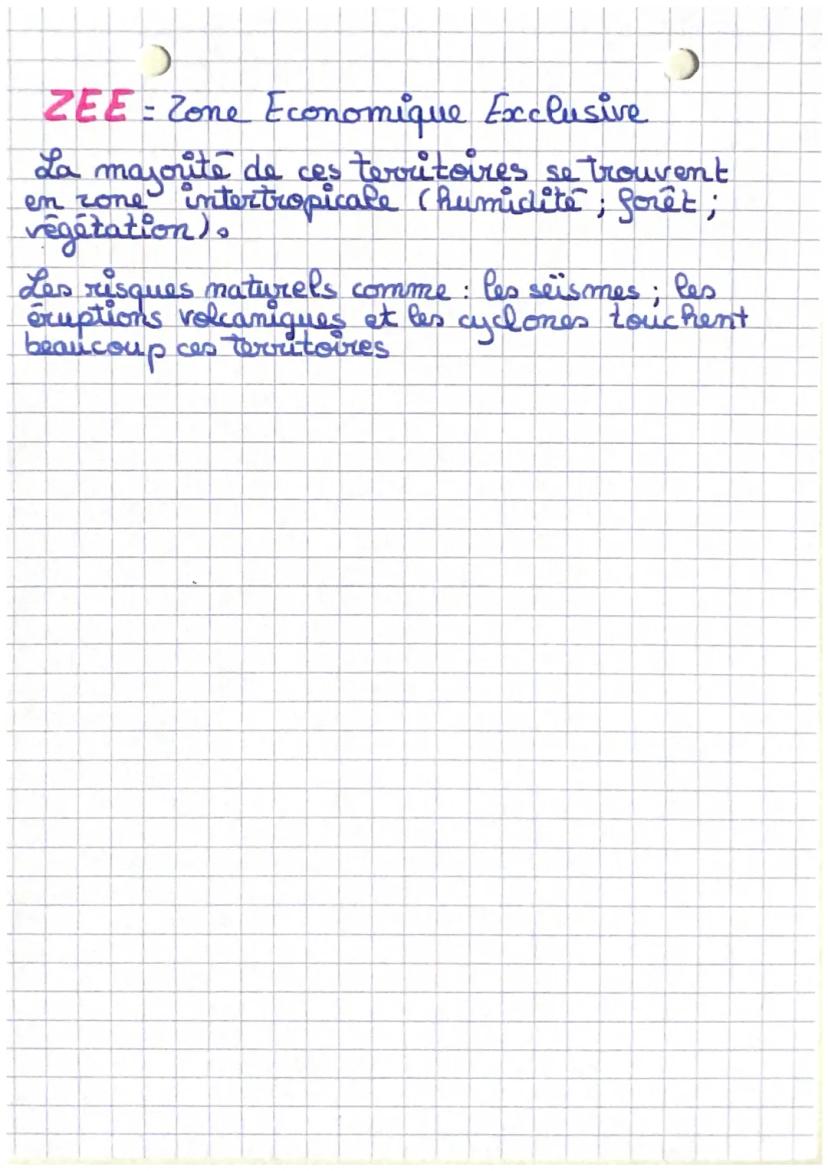 ZEE = Zone Economique Exclusive
La majorité de ces territoires se trouvent
en zone intertropicale (humidité ; forêt ;
végétation).
Les risques naturels comme : les séismes ; les
éruptions volcaniques et les cyclones touchent
beaucoup ces territoires